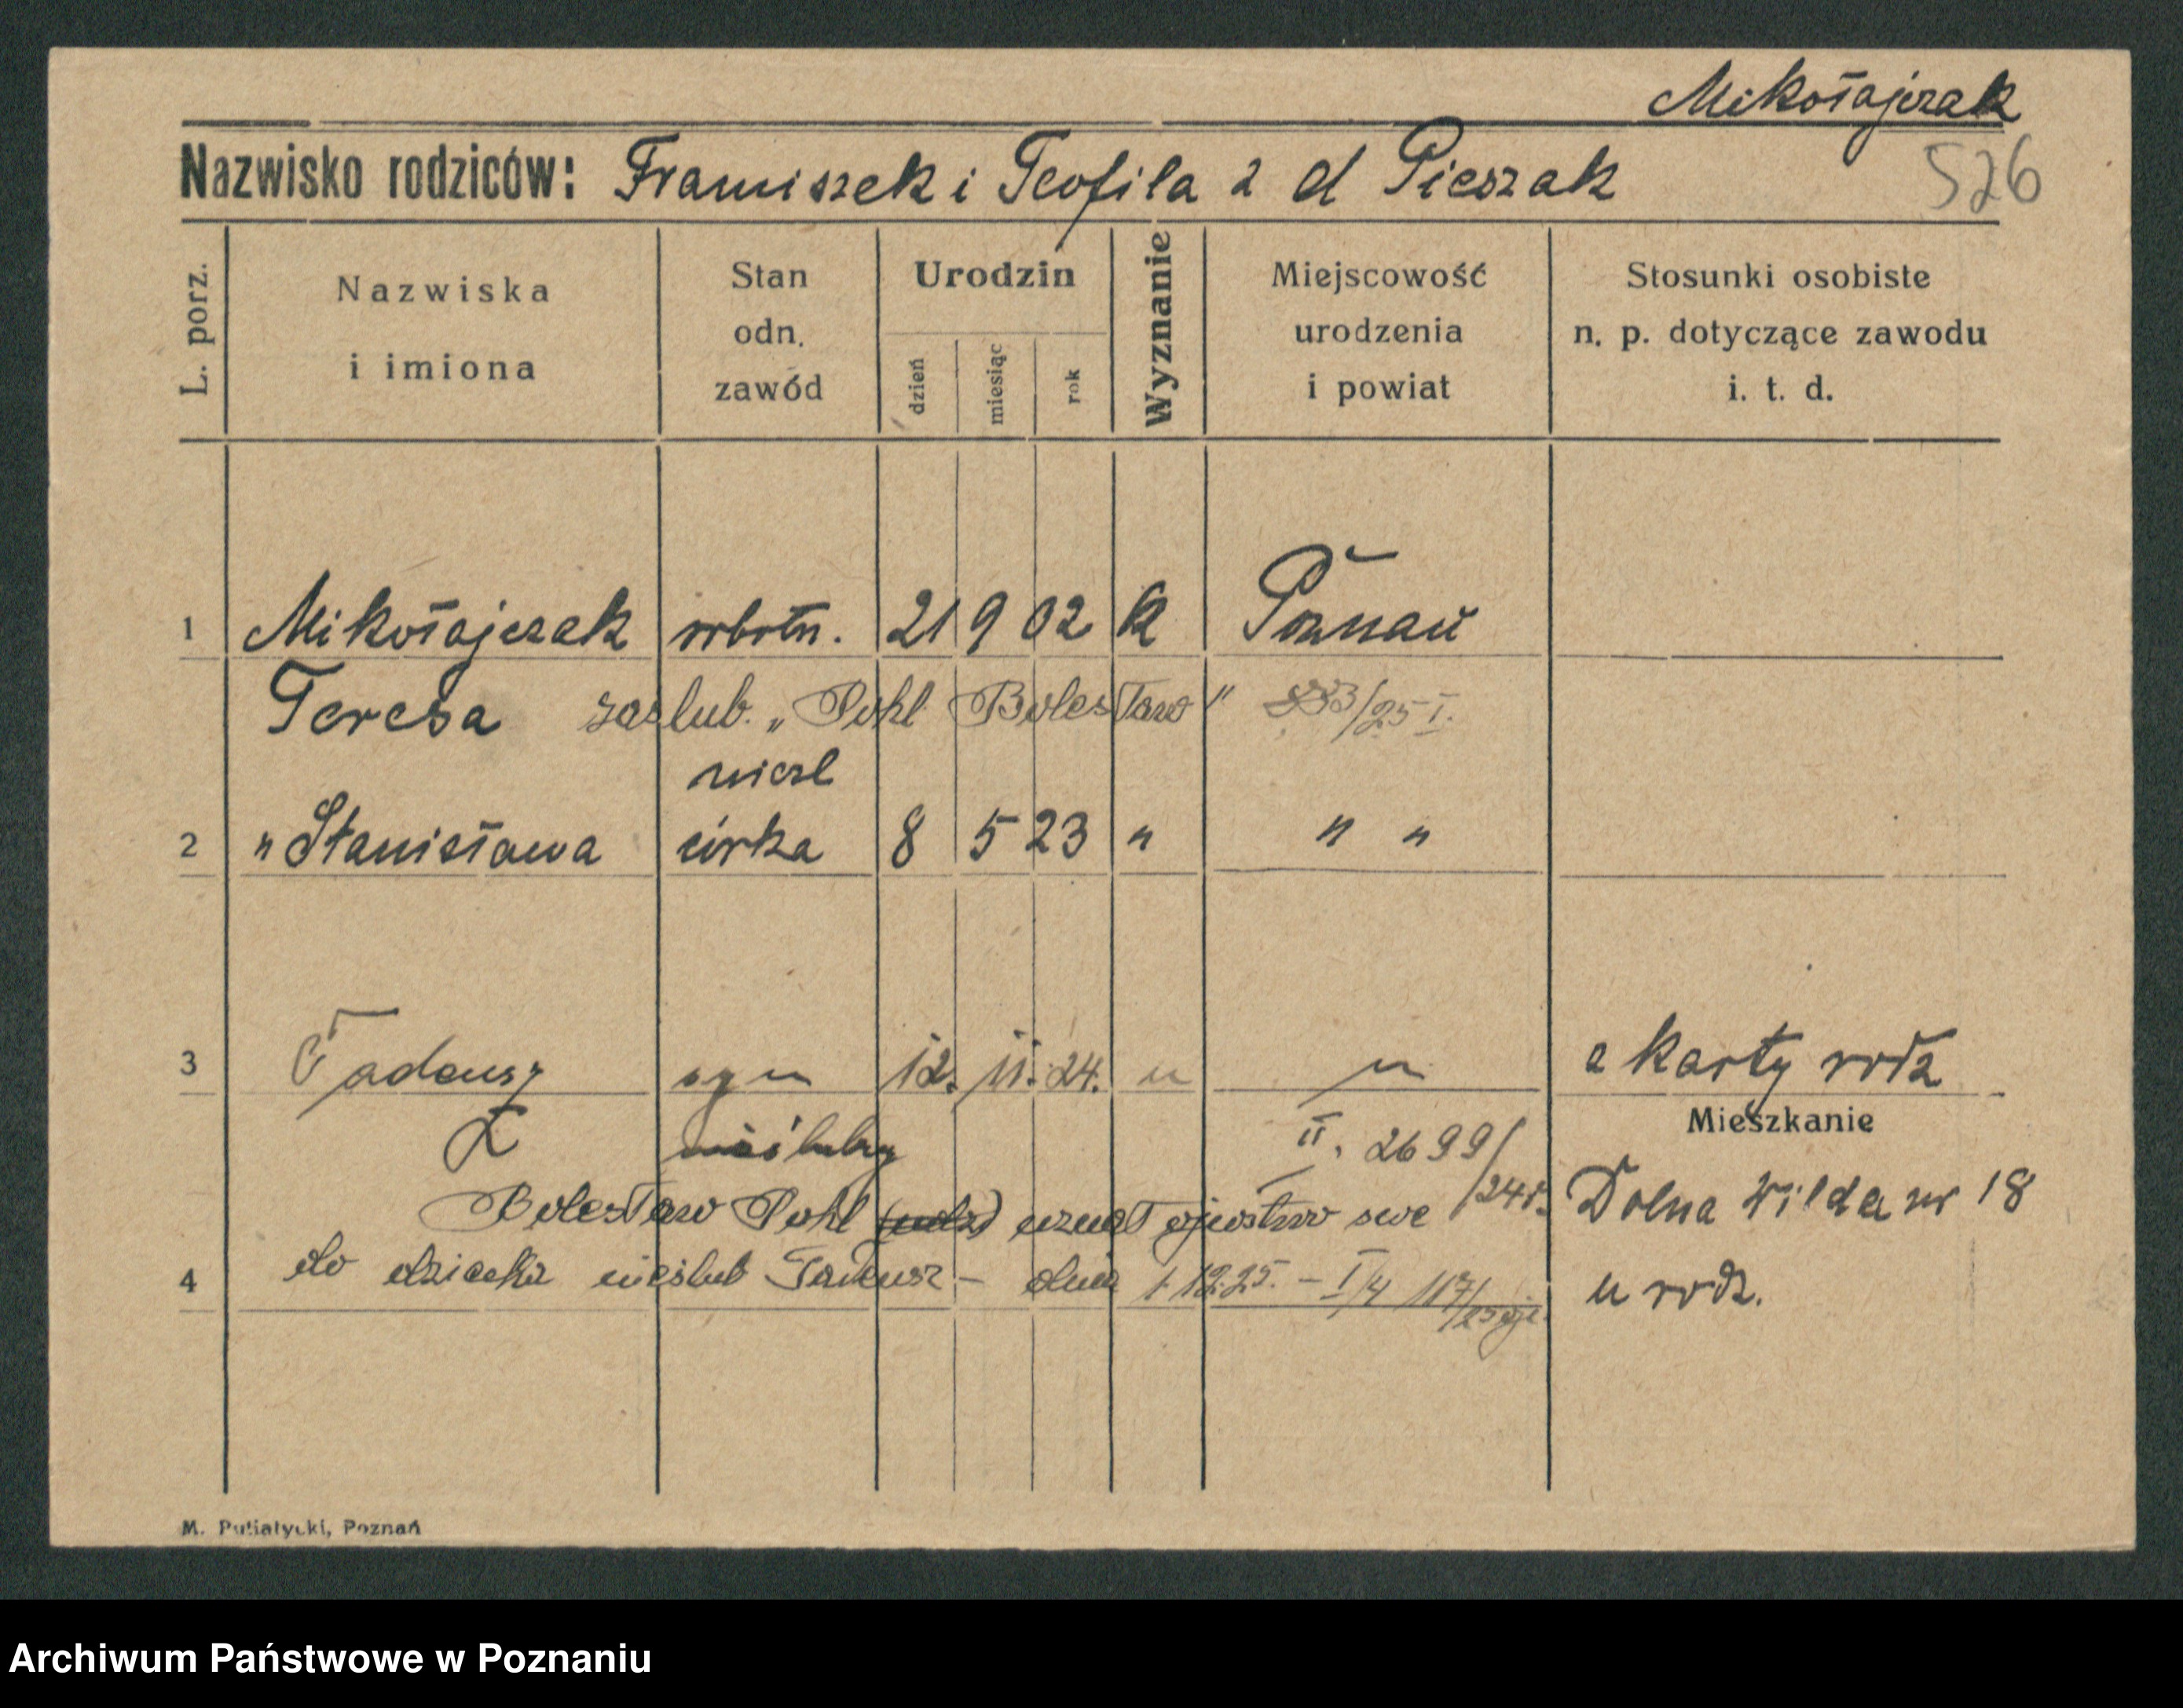 Mikołajczak
526
Nazwisko rodziców: Franciszek i Teofila z d Pieszak
L. porz.
Nazwiska i imiona
Stan odn. zawód
Urodzin
dzień miesiąc rok
Wyznanie
Miejscowość urodzenia i powiat
Stosunki osobiste n. p. dotyczące zawodu i. t. d.
1 Mikołajczak robotn. 21 9 02 k Poznań
Teresa zaślub. „Pohl Bolesław" /25 I.
nieśl
2 " Stanisława córka 8 5 23 " " "
3 Tadeusz syn 12. 11. 24. " " z karty rodz
nieślubny II. 2699/24r.
Mieszkanie
Bolesław Pohl uznał ojcostwo swe
Dolna Wilda nr 18
do dziecka nieślub Tadeusz – dnia 1 12.25. – I/4 117/25
4
u rodz.
M. Putiatycki, Poznań
Archiwum Państwowe w Poznaniu